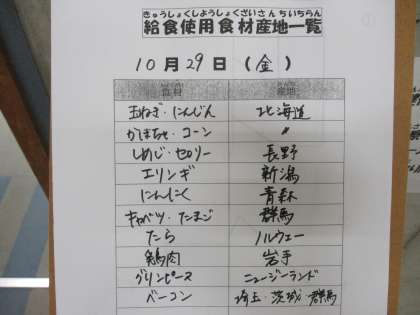 きゅうしょくしようしょくざいさんちいちらん
給食使用食材産地一覧
10月29日(金)
食材 産地
玉ねぎ・にんじん 北海道
かぼちゃ・コーン 〃
しめじ・セロリー 長野
エリンギ 新潟
にんにく 青森
キャベツ・たまご 群馬
たら ノルウェー
鶏肉 岩手
グリンピース ニュージーランド
ベーコン 埼玉・茨城・群馬